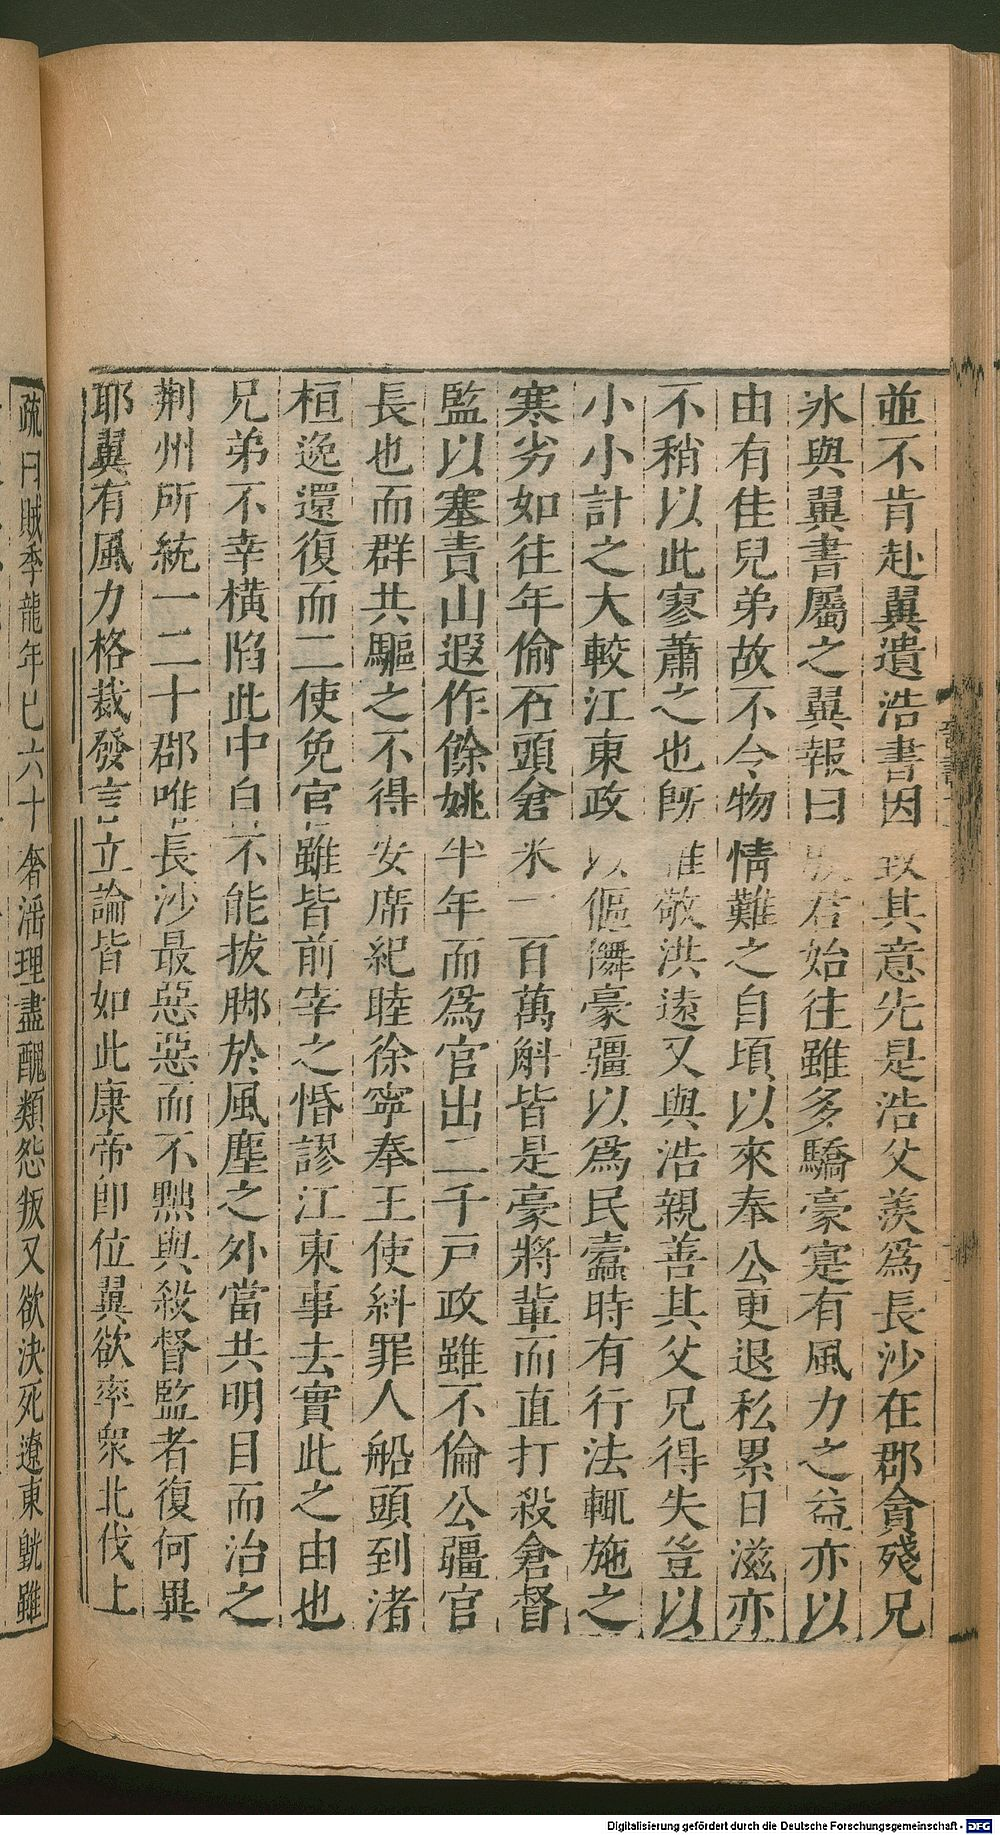 並不肯赴翼遺浩書因致其意先是浩父羨爲長沙在郡貪殘兄
氷與翼書屬之翼報曰殷君始往雖多驕豪寔有風力之益亦以
由有佳兒弟故不令物情難之自頃以來奉公更退私累日滋亦
不稍以此寥蕭之也旣雅敬洪遠又與浩親善其父兄得失豈以
小小計之大較江東政以傴儛豪彊以爲民蠹時有行法輒施之
寒劣如往年偷石頭倉米一百萬斛皆是豪將輩而直打殺倉督
監以塞責山遐作餘姚半年而爲官出二千戸政雖不倫公彊官
長也而群共驅之不得安席紀睦徐寧奉王使糾罪人船頭到渚
桓逸還復而二使免官雖皆前宰之惛謬江東事去實此之由也
兄弟不幸橫陷此中自不能拔脚於風塵之外當共明目而治之
荆州所統一二十郡唯長沙最惡惡而不黜與殺督監者復何異
耶翼有風力格裁發言立論皆如此康帝卽位翼欲率衆北伐上
疏曰賊季龍年已六十奢淫理盡醜類怨叛又欲決死遼東皝雖
Digitalisierung gefördert durch die Deutsche Forschungsgemeinschaft - DFG